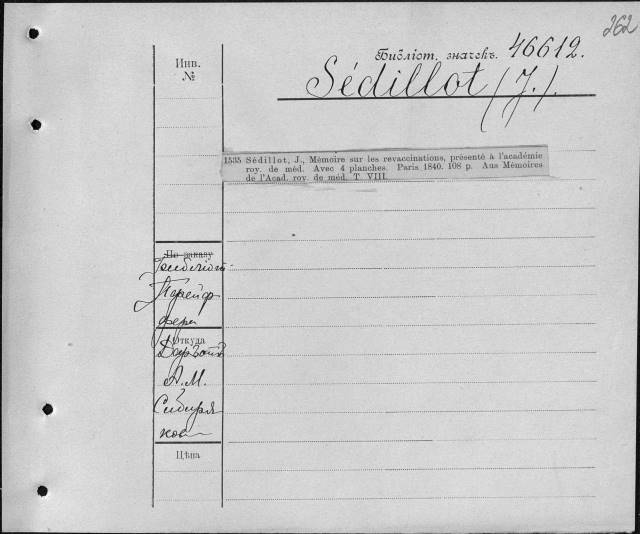 262
Библіот. значекъ. 46612.
Инв.
№
Sédillot (J.).
1535 Sédillot, J., Mémoire sur les revaccinations, présenté à l'académie
roy. de méd. Avec 4 planches. Paris 1840. 108 p. Aus Mémoires
de l'Acad. roy. de méd. T. VIII.
По заказу
Прейф
фера
Откуда
А. М.
Сибиря
ков
Цѣна